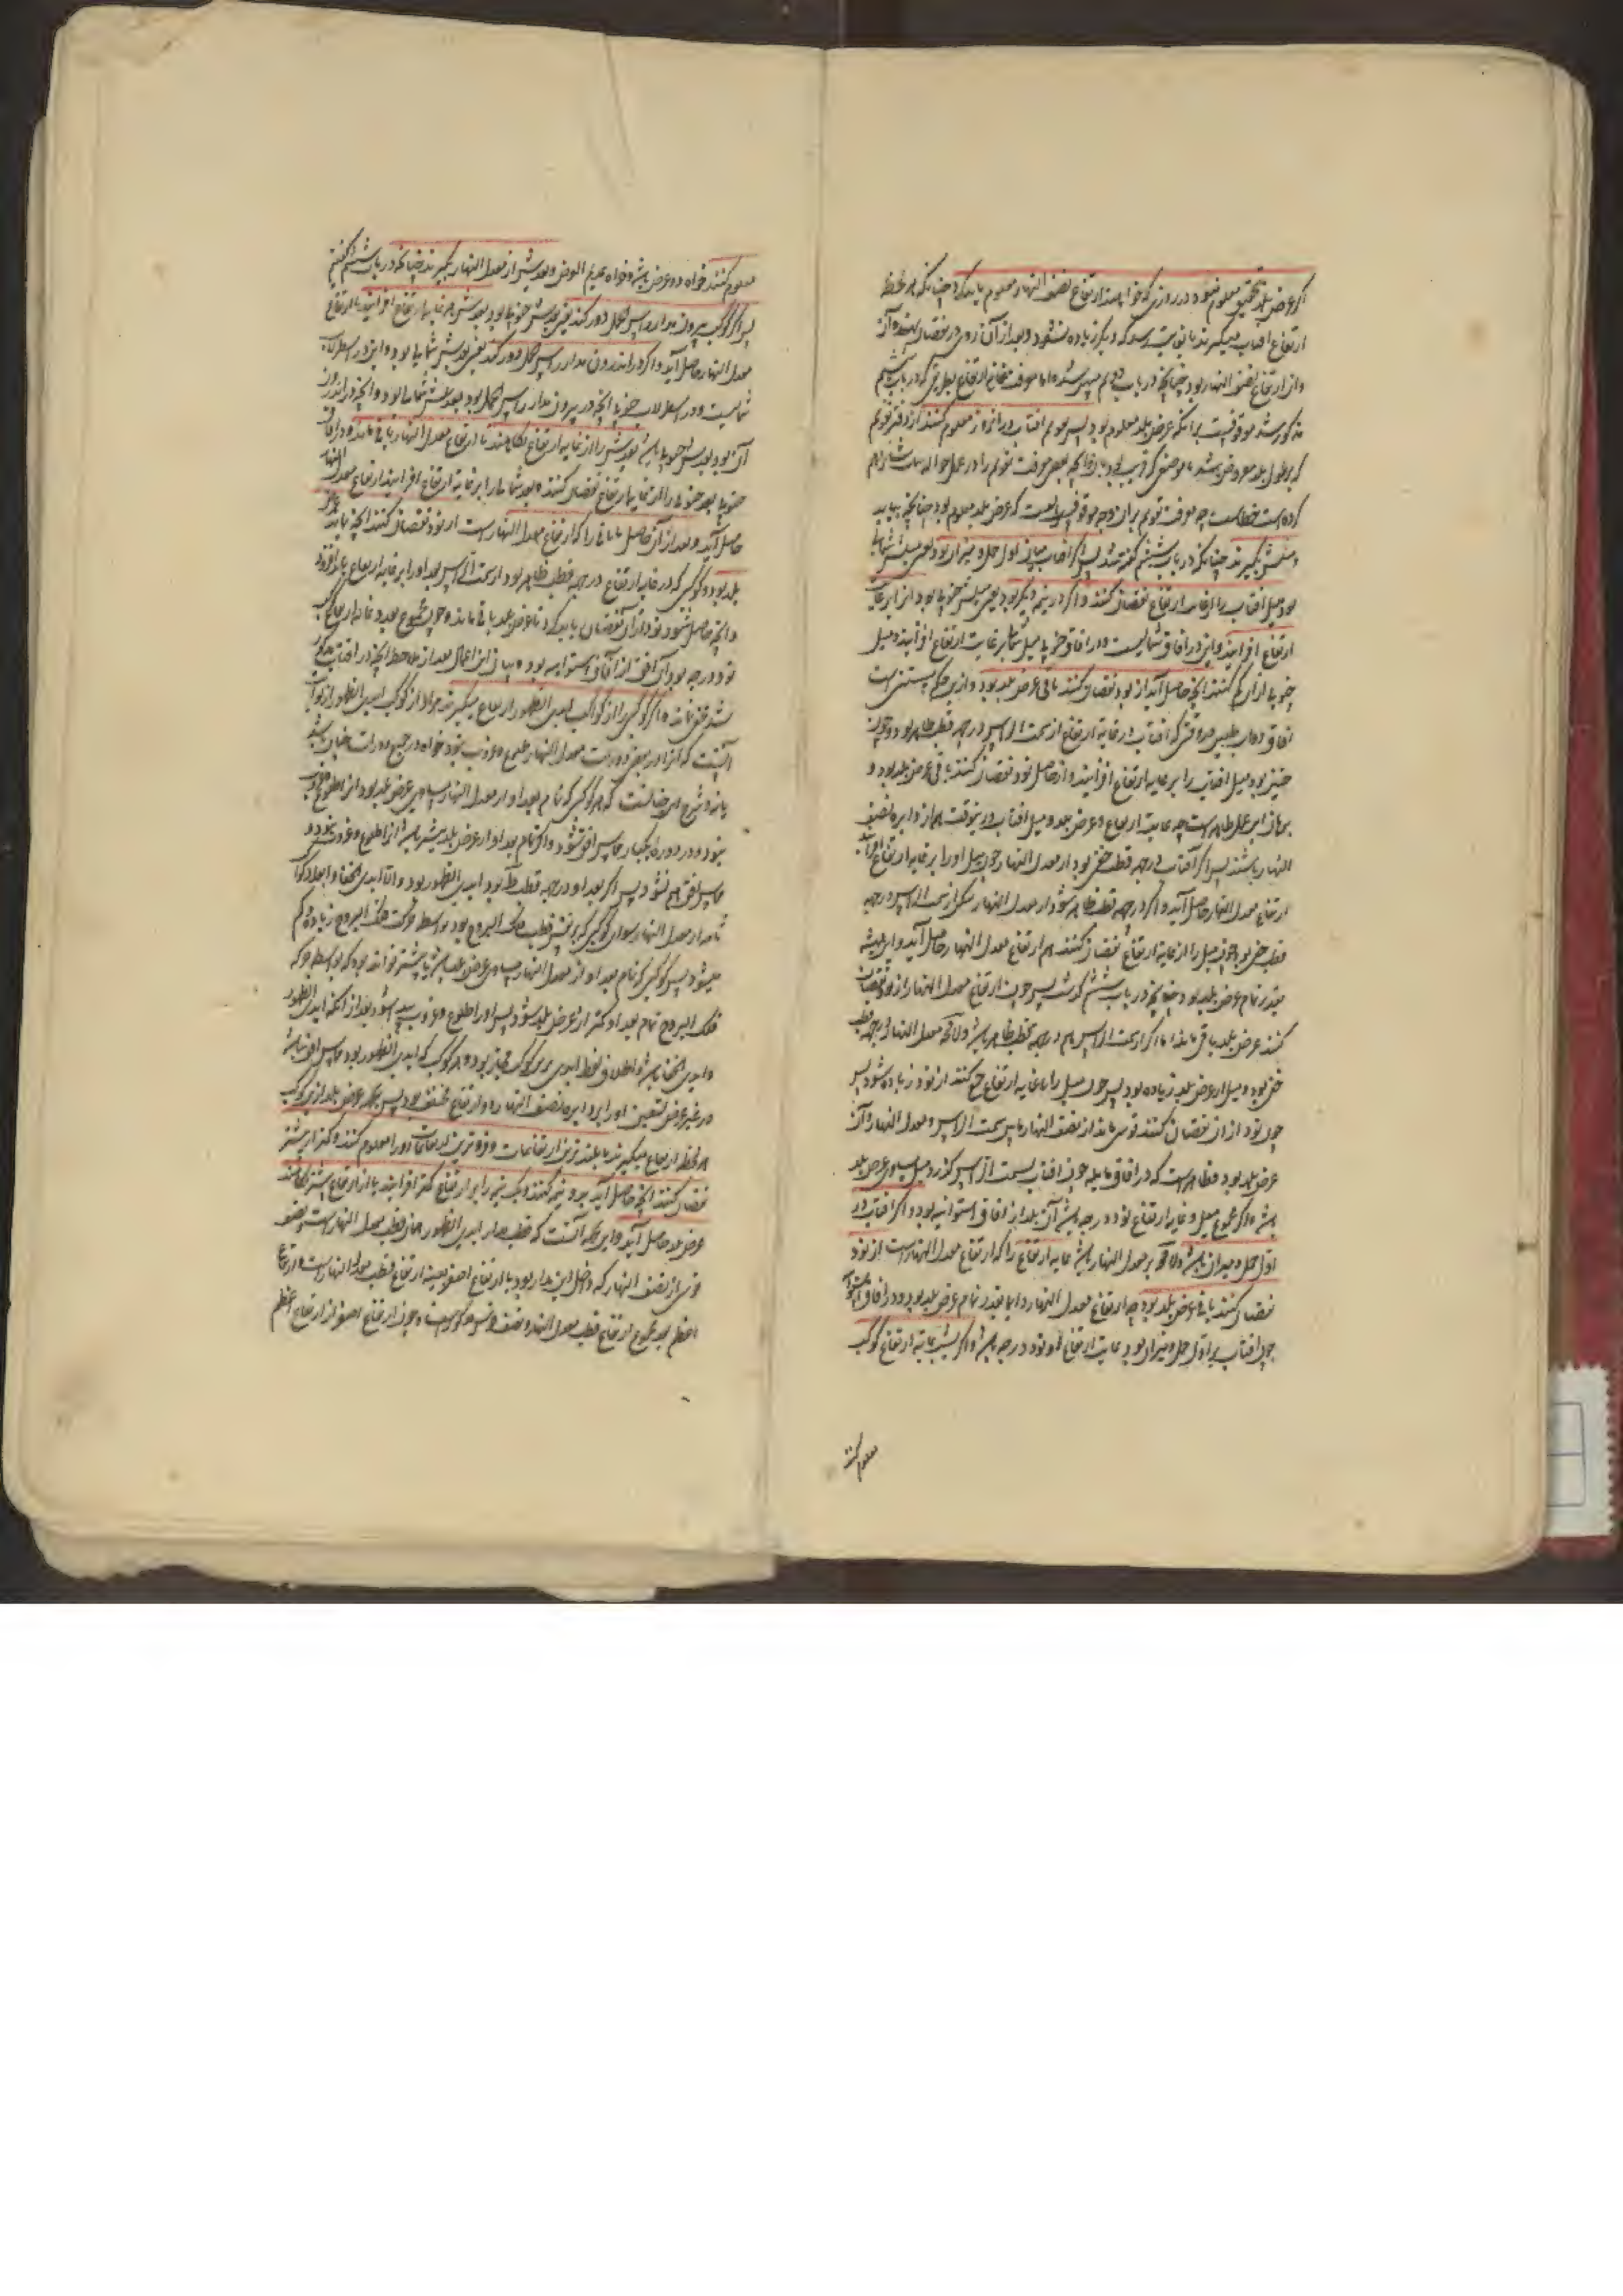 اگر عرض بلد بتحقیق معلوم نبود در روزی که خواهند ارتفاع نصف النهار معلوم باید کرد چنانکه هر لحظه
ارتفاع افتاب میگیرند تا بغایت رسد که دیگر زیاده نشود و بعد از آن روی در نقصان نهد و آن
و ان ارتفاع نصف النهار بود چنانچه در باب دویم مبین شده اما معرفت غایة ارتفاع بطریقی که در باب ششم
مذکور شد موقوفست برانکه عرض بلد معلوم بود پس تقویم افتاب در انروز معلوم کنند از دفتر تقویم
که بر طول بلد مفروض باشد یا موضعی که قریب بوی بود و انچه بعضی معرفت تقویم را در عمل حواله بباب
کرده است خطاست چه معرفت تقویم بران وجه موقوفست که عرض بلد معلوم بود چنانچه بیاید
و میلش بگیرند چنانکه در باب ششم گفته شد پس اگر افتاب میان اول حمل و میزان بود یعنی میلش شمالی
بود میل افتاب را از غایت ارتفاع نقصان کنند و اگر در نیمه دیگر بود یعنی میلش جنوبی بود انرا بر غایت
ارتفاع افزایند و این در افاق شمالیست و در افاق جنوبی میل شمالی بر غایت ارتفاع افزایند و میل
جنوبی از ان کم کنند انچه حاصل آید از نود نقصان کنند باقی عرض بلد بود و ازین حکم مستثنی است
افاق ذوات ظلین در وقتی که افتاب در غایة ارتفاع از سمت الراس در جهه قطب ظاهر بود و چون
چنین بود میل افتاب را بر غایه ارتفاع افزایند و از حاصل نود نقصان کنند باقی عرض بلد بود و
برهان این عمل ظاهر است چه غایت ارتفاع و عرض بلد و میل افتاب درینوقت همه از دایره نصف
النهار باشند پس اگر آفتاب در جهه قطب خفی بود از معدل النهار چون میل او را بر غایة ارتفاع افزایند
ارتفاع معدل النهار حاصل آید و اگر در جهه قطب ظاهر شود از معدل النهار لیکن از سمت الراس در جهه
قطب خفی بود چون میل را از غایة ارتفاع نقصان کنند هم ارتفاع معدل النهار حاصل آید و این همیشه
بقدر تمام عرض بلد بود چنانچه در باب ششم گذشت پس چون ارتفاع معدل النهار از نود نقصان
کنند عرض بلد باقی ماند اما اگر از سمت الراس هم در جهه قطب ظاهر باشد و لا محه معدل النهار در جهه قطب
خفی بود و میل از عرض بلد زیاده بود پس چون میل را با غایه ارتفاع جمع کنند از نود زیاده شود پس
چون نود از ان نقصان کنند قوسی ماند از نصف النهار مابین سمت الراس و معدل النهار و آن
عرض بلد بود و ظاهر است که در افاق مایله چون افتاب بسمت الراس گذرد میل مساوی عرض بلد
باشد و اگر مجموع میل و غایه ارتفاع نود درجه باشد آن بلد از افاق استوائیه بود و اگر افتاب در
اول حمل و میزان باشد ولا محه بر معدل النهار باشد غایه ارتفاع را که ارتفاع معدل النهار است از نود
نقصان کنند باقی عرض بلد بود چه ارتفاع معدل النهار دایما بقدر تمام عرض بلد بود و در افاق استوائیه
چون افتاب بر اول حمل و میزان بود غایت ارتفاع او نود درجه باشد و اگر بشب غایة ارتفاع کوکب
معلوم کنند
معلوم کنند خواه ذو عرض باشد و خواه عدیم العرض و بعدش از معدل النهار بگیرند چنانکه در باب ششم گفتیم
پس اگر کوکب بیرون مدار راس الحمل دور کند یعنی بعدش جنوبی بود بعدش بر غایه ارتفاع افزایند تا ارتفاع
معدل النهار حاصل آید و اگر در اندرون مدار راس الحمل دور کند یعنی بعدش شمالی بود و این در اسطرلاب
شمالیست و در اسطرلاب جنوبی انچه در بیرون مدار راس الحمل بود بعدش شمالی بود و انچه در اندرون
آن بود بعدش جنوبی باشد بعدش را از غایه ارتفاع بکاهند تا ارتفاع معدل النهار باقی ماند و در افاق
جنوبی بعد جنوبی را از غایه ارتفاع نقصان کنند و بعد شمالی را بر غایة ارتفاع افزایند ارتفاع معدل النهار
حاصل آید و بعد از آن حاصل یا باقی را که ارتفاع معدل النهار است از نود نقصان کنند انچه بماند عرض
بلد بود و کوکبی که در غایه ارتفاع در جهه قطب ظاهر بود از سمت الراس بعد او را بر غایه ارتفاع باید افزود
و انچه حاصل شود نود از آن نقصان باید کرد تا عرض بلد باقی ماند و چون مجموع بعد و غایه ارتفاع کوکب
نود درجه بود آن افق از آفاق استوائیه بود و بیان این اعمال بعد از ملاحظه انچه در افتاب مذکور
شد مخفی نماند و اگر کوکبی را از کواکب ابدی الظهور ارتفاع میگیرند مراد از کوکب ابدی الظهور
آنست که انرا در بعضی دورات معدل النهار طلوع و غروب نبود خواه در جمیع دورات چنان باشد
یا نه و شرح این سخن آنست که هر کوکبی که تمام بعد او از معدل النهار مساوی عرض بلد بود انرا طلوع و غروب
نبود و در دوره یکبار مماس افق شود و اگر تمام بعد او از عرض بلد بیشتر باشد انرا طلوع و غروب نبود و
مماس افق هم نشود پس اگر بعد او در جهه قطب ظاهر بود ابدی الظهور بود و الا ابدی الخفا و ابعاد کواکب
ثابته از معدل النهار سوای کوکبی که بر نفس قطب فلک البروج بود بواسطه حرکت فلک البروج زیاده و کم
میشود پس کوکبی که تمام بعد او از معدل النهار مساوی عرض بلد باشد یا بیشتر تواند بود که بواسطه حرکت
فلک البروج تمام بعد او کمتر از عرض بلد شود پس او را طلوع و غروب پیدا شود بعد از انکه ابدی الظهور
و ابدی الخفا باشد و اطلاق لفظ ابدی برین کوکب مجاز بود و هر کوکب که ابدی الظهور بود مماس افق نباشد
در غیر عرض تسعین او را بر دایره نصف النهار دو ارتفاع مختلف بود پس بجهة عرض بلد ازین کوکب
هر لحظه ارتفاع میگیرند تا بلندترین ارتفاعات و فروترین ارتفاعات او را معلوم کنند و کمتر از بیشتر
نقصان کنند انچه حاصل آید بدو نیم کنند و یک نیمه را بر ارتفاع کمتر افزایند یا از ارتفاع بیشتر بکاهند
عرض بلد حاصل آید و این بجهه آنست که قطب مدار ابدی الظهور همان قطب معدل النهار است و نصف
قوسی از نصف النهار که داخل این مدار بود با ارتفاع اصغر بعینه ارتفاع قطب معدل النهار است و ارتفاع
اعظم بعد مجموع ارتفاع قطب معدل النهار و نصف قوس مذکور است و چون ارتفاع اصغر از ارتفاع اعظم